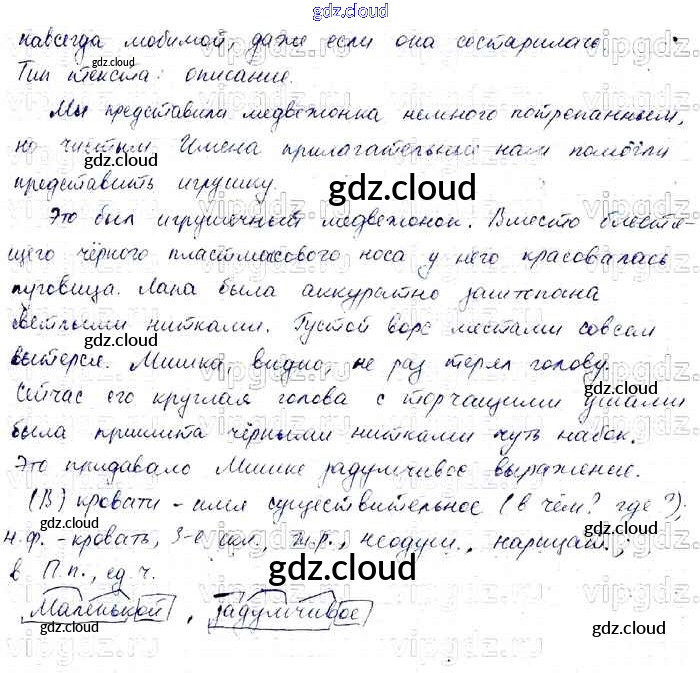 gdz.cloud
навсегда любимой, даже если она состарилась.
gdz.cloud
Тип текста: описание.
Мы представили медвежонка немного потрепанным,
но чистым. Имена прилагательные нам помогли
gdz.cloud
gdz.cloud
представить игрушку.
gdz.cloud
Это был игрушечный медвежонок. Вместо блестя-
gdz.cloud
щего чёрного пластмасового носа у него красовалась
пуговица. Лапа была аккуратно заштопана
светлыми нитками. Густой ворс местами совсем
gdz.cloud
gdz.cloud
вытерся. Мишка, видно, не раз терял голову.
Сейчас его круглая голова с торчащими ушами
gdz.cloud
была пришита чёрными нитками чуть набок.
gdz.cloud
Это придавало Мишке задумчивое выражение.
(В) кровати - имя существительное (в чём? где?);
gdz.cloud
н.ф. - кровать, 3-е скл., ж.р., неодуш., нарицат.;
в П.п., ед.ч.
gdz.cloud
маленькой, задумчивое
gdz.cloud
gdz.cloud
gdz.cloud